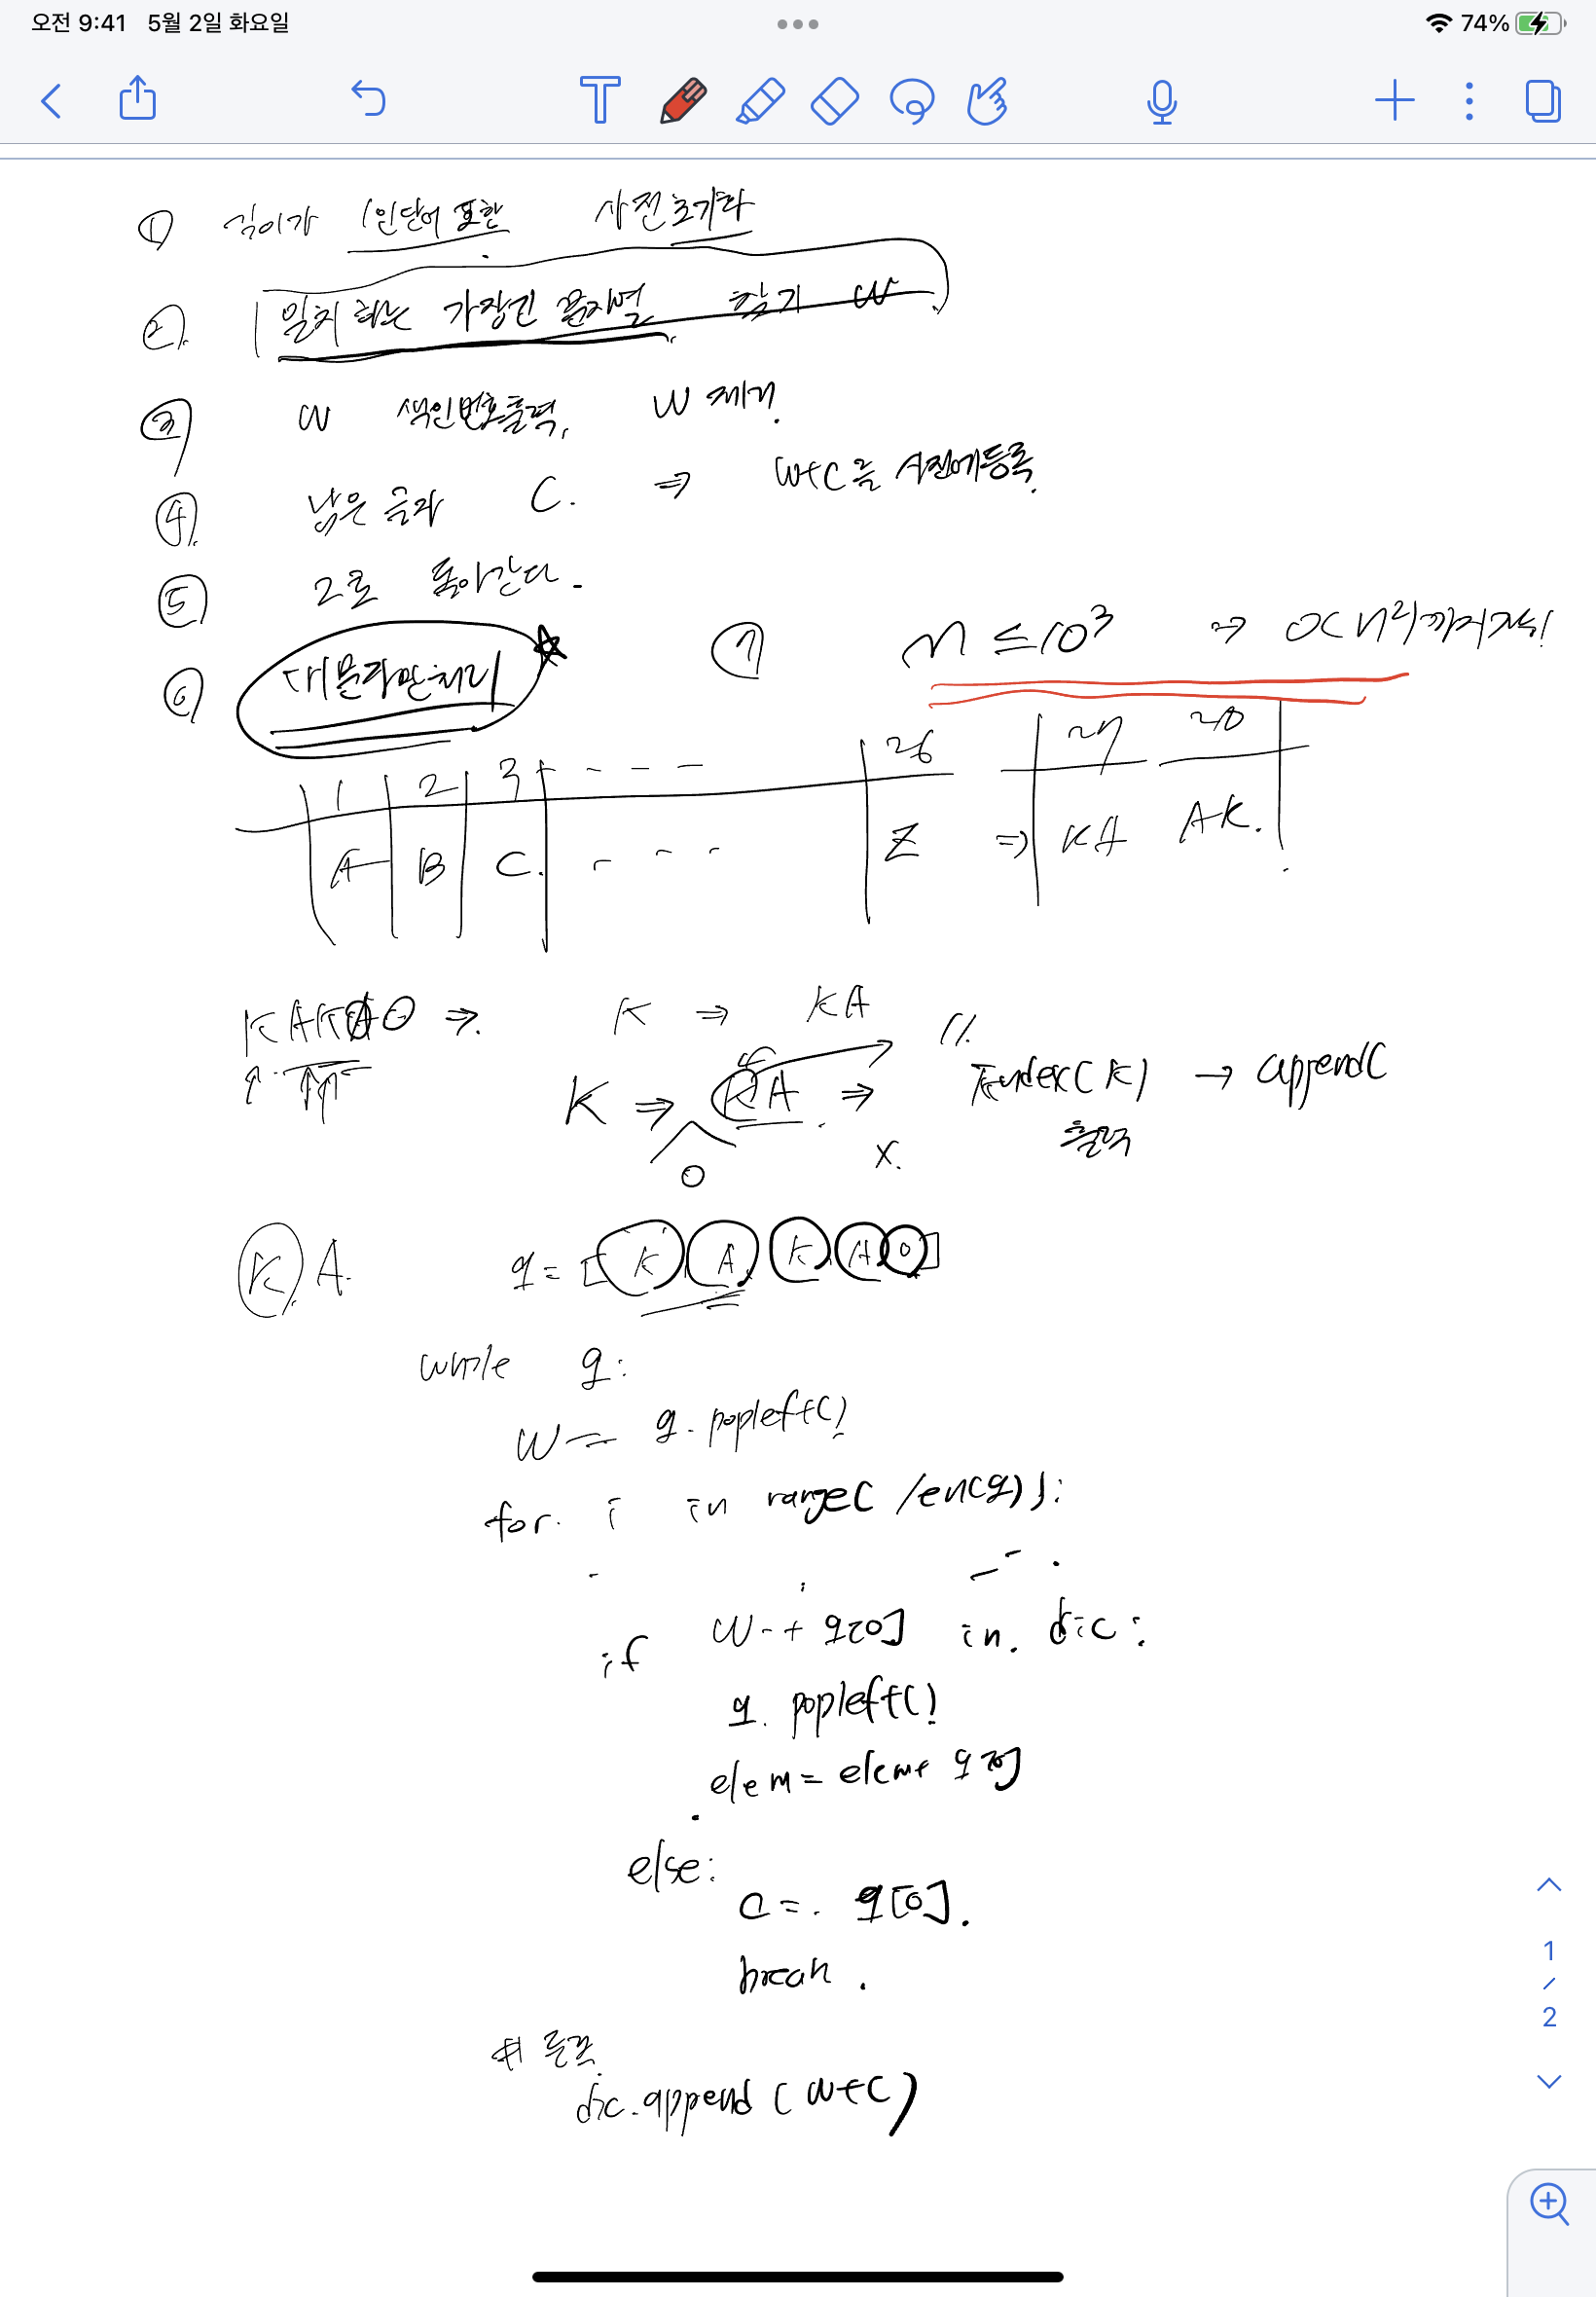 오전 9:41 5월 2일 화요일
74%
① 길이가 1인단어 포함 사전초기화
② 일치하는 가장긴 문자열 찾기 w
③ w 색인번호출력, w 제거.
④ 남은 글자 C. ⇒ w+c를 사전에등록.
⑤ 2로 돌아간다.
⑥ 대문자만처리
⑦ n ≤ 10³ → O(n²)까지가능!
1 2 3 - - - 26 27 28
A B C. - - - Z ⇒ KA AK.
KAKAO ⇒ K ⇒ KA
11.
K ⇒ KA ⇒ index(K) → append(
O X. 출력
K A. q = [K A K A O]
while q:
w = q.popleft()
for i in range(len(q)):
if w + q[0] in dic:
q.popleft()
elem = elem+ q[0]
else:
c = q[0].
break.
# 등록
dic.append(w+c)
1
/
2